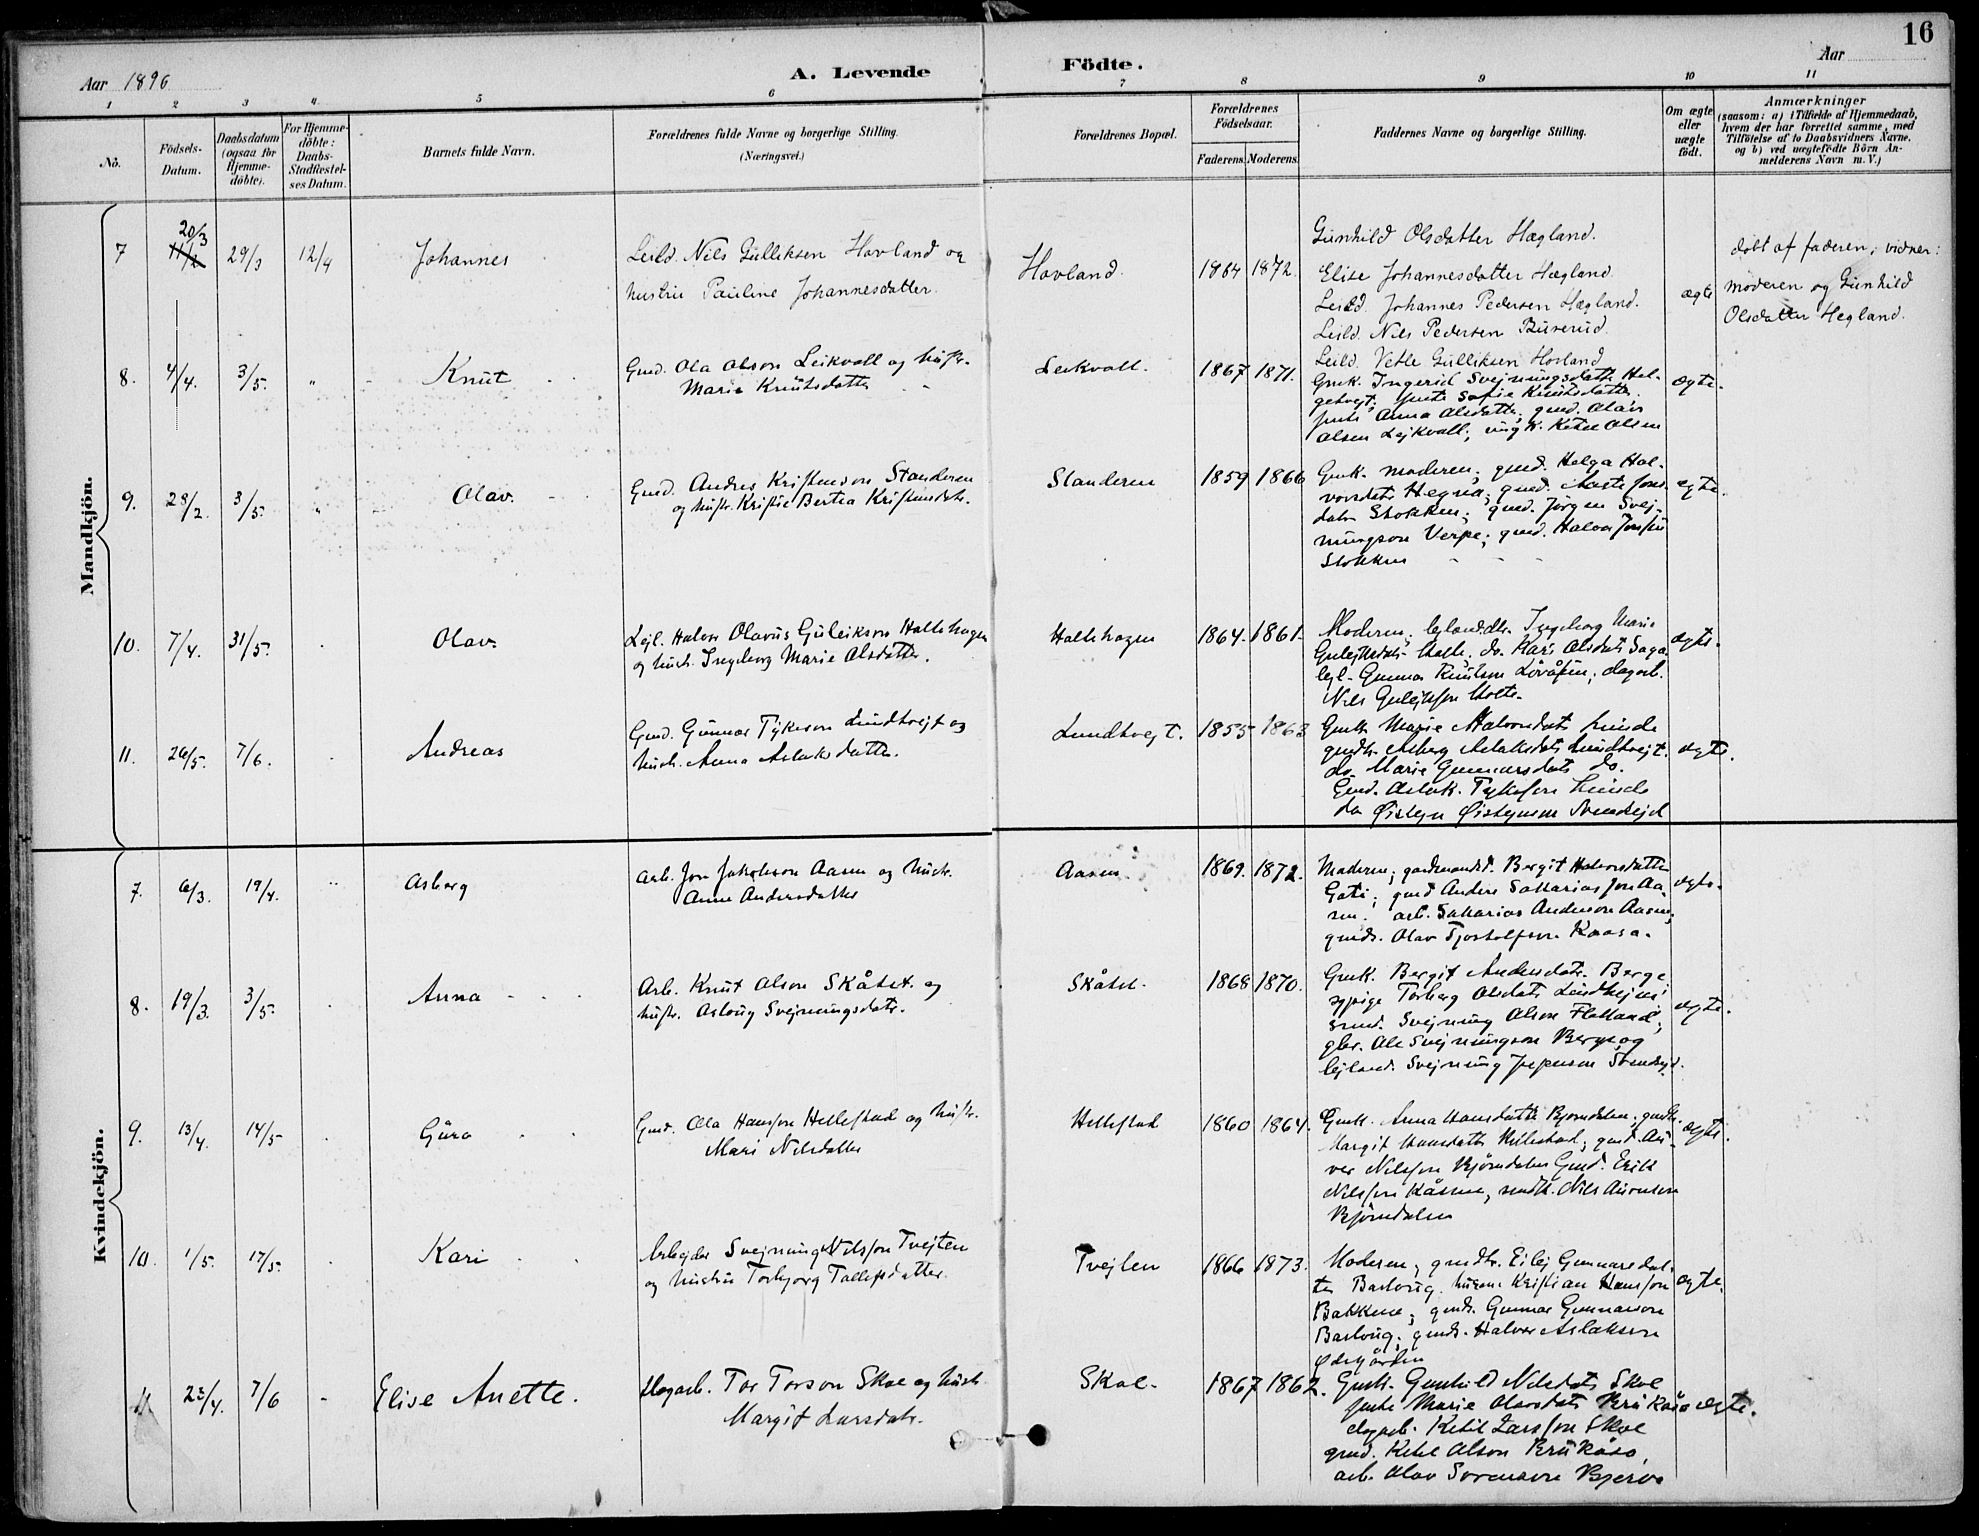 16
Aar 1896
A. Levende Födte.
Aar
1 2 3 4 5 6 7 8 9 10 11
No.
Födsels-Datum.
Daabsdatum (ogsaa for Hjemme-döbte).
For Hjemme-döbte: Daabs-Stadfæstel-ses Datum.
Barnets fulde Navn.
Forældrenes fulde Navne og borgerlige Stilling. (Næringsvei.)
Forældrenes Bopæl.
Forældrenes Födselsaar.
Faderens. Moderens.
Faddernes Navne og borgerlige Stilling.
Om ægte eller uægte födt.
Anmærkninger (saasom: a) i Tilfælde af Hjemmedaab, hvem der har forrettet samme, med Tilföielse af to Daabsvidners Navne, og b) ved uægtefödte Börn An-melderens Navn m. V.)
Mandkjön.
7 20/3 29/3 12/4 Johannes
Leild. Nils Gulliksen Hovland og
hustru Pauline Johannesdatter.
Hovland. 1864 1872.
Gunhild Olsdatter Hægland.
Elise Johannesdatter Hægland.
Leild. Johannes Pedersen Hægland.
Leild. Nils Pedersen Buverud.
Leild. Vetle Gulliksen Hovland
ægte
døbt af faderen, vidner:
moderen og Gunhild
Olsdatter Hegland.
8. 4/4. 3/5. " Knut
Gmd. Ola Olson Leikvoll og hustr.
Marie Knutsdatter
Leikvoll. 1867 1871.
Gmk. Ingerid Svejnungsdatt. Hel-
getvejt; jente Sofie Knutsdatter.
jente Anna Olsdatter; gmd. Olav
Olsen Lejkvoll; ungk. Ketel Olsen
ægte.
9. 28/2. 3/5. " Olav.
Gmd. Andres Kristenson Standeren
og hustr. Kristie Bertea Kristensdtr.
Standeren 1859 1866
Gmk. moderen; gmd. Helga Hal-
vorsdatr Hegna; gmd. Aaste Jons-
datr Stokken; gmd. Jørgen Svej-
nungson Verpe; gmd. Halvor Jonsen
Stokken
ægte.
10. 7/4. 31/5. Olav.
Lejl. Halvor Olavus Guleikson Holtehagen
og hustr. Ingeborg Marie Olsdatter.
Holtehagen 1864. 1861.
Moderen; lejland.dtr. Ingeborg Marie
Gulejksdatr Holte, do. Kari Olsdatr Saga
lejl. Gunnar Knutson Løvåsen; dagarb.
Nils Gulejkson Holte.
ægte.
11. 26/5. 7/6. Andreas
Gmd. Gunnar Tykeson Lundtvejt og
hustr. Anna Aslaksdatter.
Lundtvejt. 1855 1863
Gmk. Marie Halvorsdatr Linde
gmdtr. Asberg Aslaksdatr Lundtvejt.
do. Marie Gunnarsdatr do.
Gmd. Aslak. Tykeson Linde
do Øistejn Øistejnson Svenseid
ægte.
Kvindekjön.
7. 6/3. 19/4. " Asberg
Arb. Jon Jakobson Aasen og hustr.
Anne Andersdatter
Aasen. 1869. 1872.
Moderen; gardmandsd. Bergit Halvorsdatter
Gata; gmd Anders Sakarias Jon Aa-
sen. arb. Sakarias Anderson Aasen,
gmds. Olav Tjostolfson Kaasa.
ægte.
8. 19/3. 3/5. Anna
Arb. Knut Olson Skåtet. og
hustr. Aslaug Svejnungsdatr.
Skåtet. 1868 1870.
Gmk. Bergit Andersdatr. Berge
sypige Torberg Olsdatr Lindhejm;
gmd. Svejnung Olson Flatland;
gbr. Ole Svejnungson Berge og
lejland. Svejnung Jespersen Svenseid.
ægte.
9. 13/4. 14/5. Guro
Gmd. Ola Hansson Hellestad og hustr.
Mari Nilsdatter
Hellestad 1860 1864.
Gmk. Anna Hansdatter Bjørndalen; gmdtr.
Margit Hansdatr Hellestad; gmd. An-
ver Nilsson Bjørndalen Gmd. Erik
Nilsson Kåsene, smdk. Nils Auenson
Bjørndalen
ægte.
10. 1/5. 17/5. Kari
Arbejder Svejnung Nilsson Tvejten
og hustru Torbjorg Tollefsdatter.
Tvejten 1866 1873.
Moderen; gmdtr. Eilej Gunnarsdat-
ter Baslaug. husm. Kristian Hansson
Bakkene; gmds. Gunnar Gunnarson
Baslaug; gmds. Halvor Aslakson
Ødegården
ægte.
11. 23/4. 7/6 Elise Anette.
Dagarb. Tor Torson Skoe og hustr.
Margit Larsdatr.
Skoe. 1867 1862.
Gmk. Gunhild Nilsdatr Skoe
jente Marie Olavsdatr Brukåsa
dagarb. Ketil Larsson Skoe
gmd. Ketel Olson Brukåsa,
arb. Olav Sorenson Bjerva
ægte.